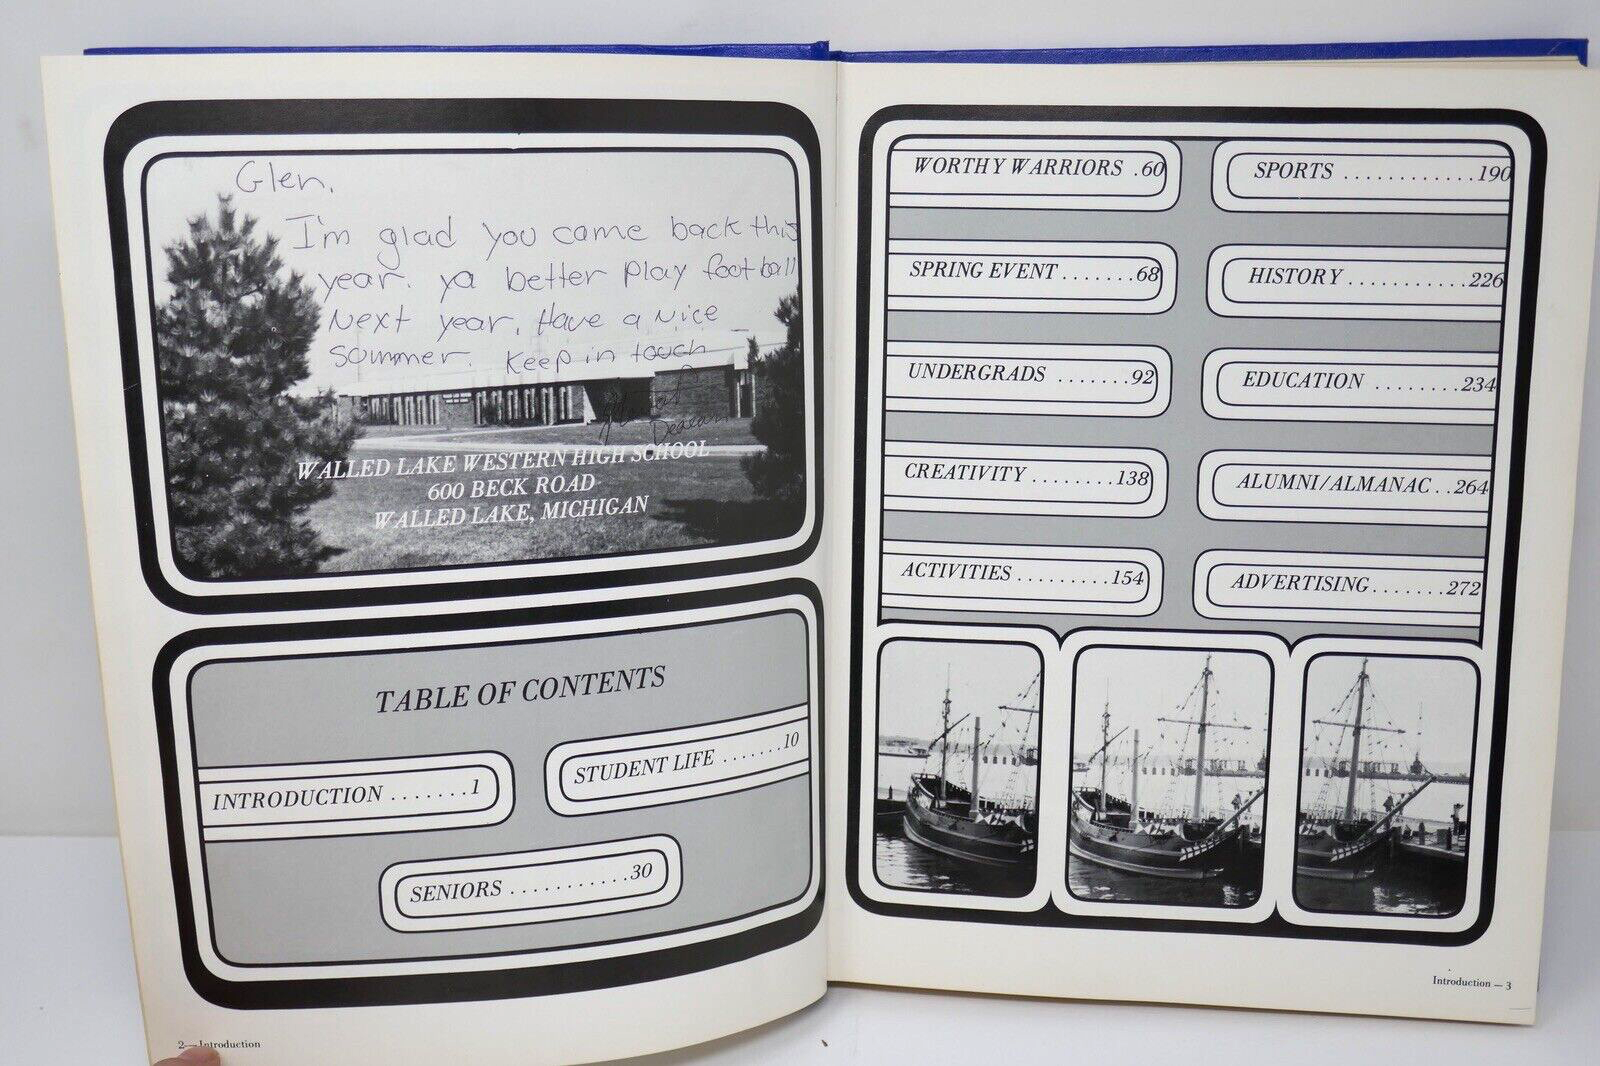 Glen,
I'm glad you came back this
year. ya better play football
Next year. Have a Nice
summer. Keep in touch
WALLED LAKE WESTERN HIGH SCHOOL
600 BECK ROAD
WALLED LAKE, MICHIGAN
TABLE OF CONTENTS
INTRODUCTION . . . . . . . 1
STUDENT LIFE . . . . . . . 10
SENIORS . . . . . . . . . . . 30
2—Introduction
WORTHY WARRIORS . 60
SPRING EVENT . . . . . . . 68
UNDERGRADS . . . . . . . 92
CREATIVITY . . . . . . . . 138
ACTIVITIES . . . . . . . . . 154
SPORTS . . . . . . . . . . . . 190
HISTORY . . . . . . . . . . . 226
EDUCATION . . . . . . . . 234
ALUMNI/ALMANAC . . 264
ADVERTISING . . . . . . . 272
Introduction — 3